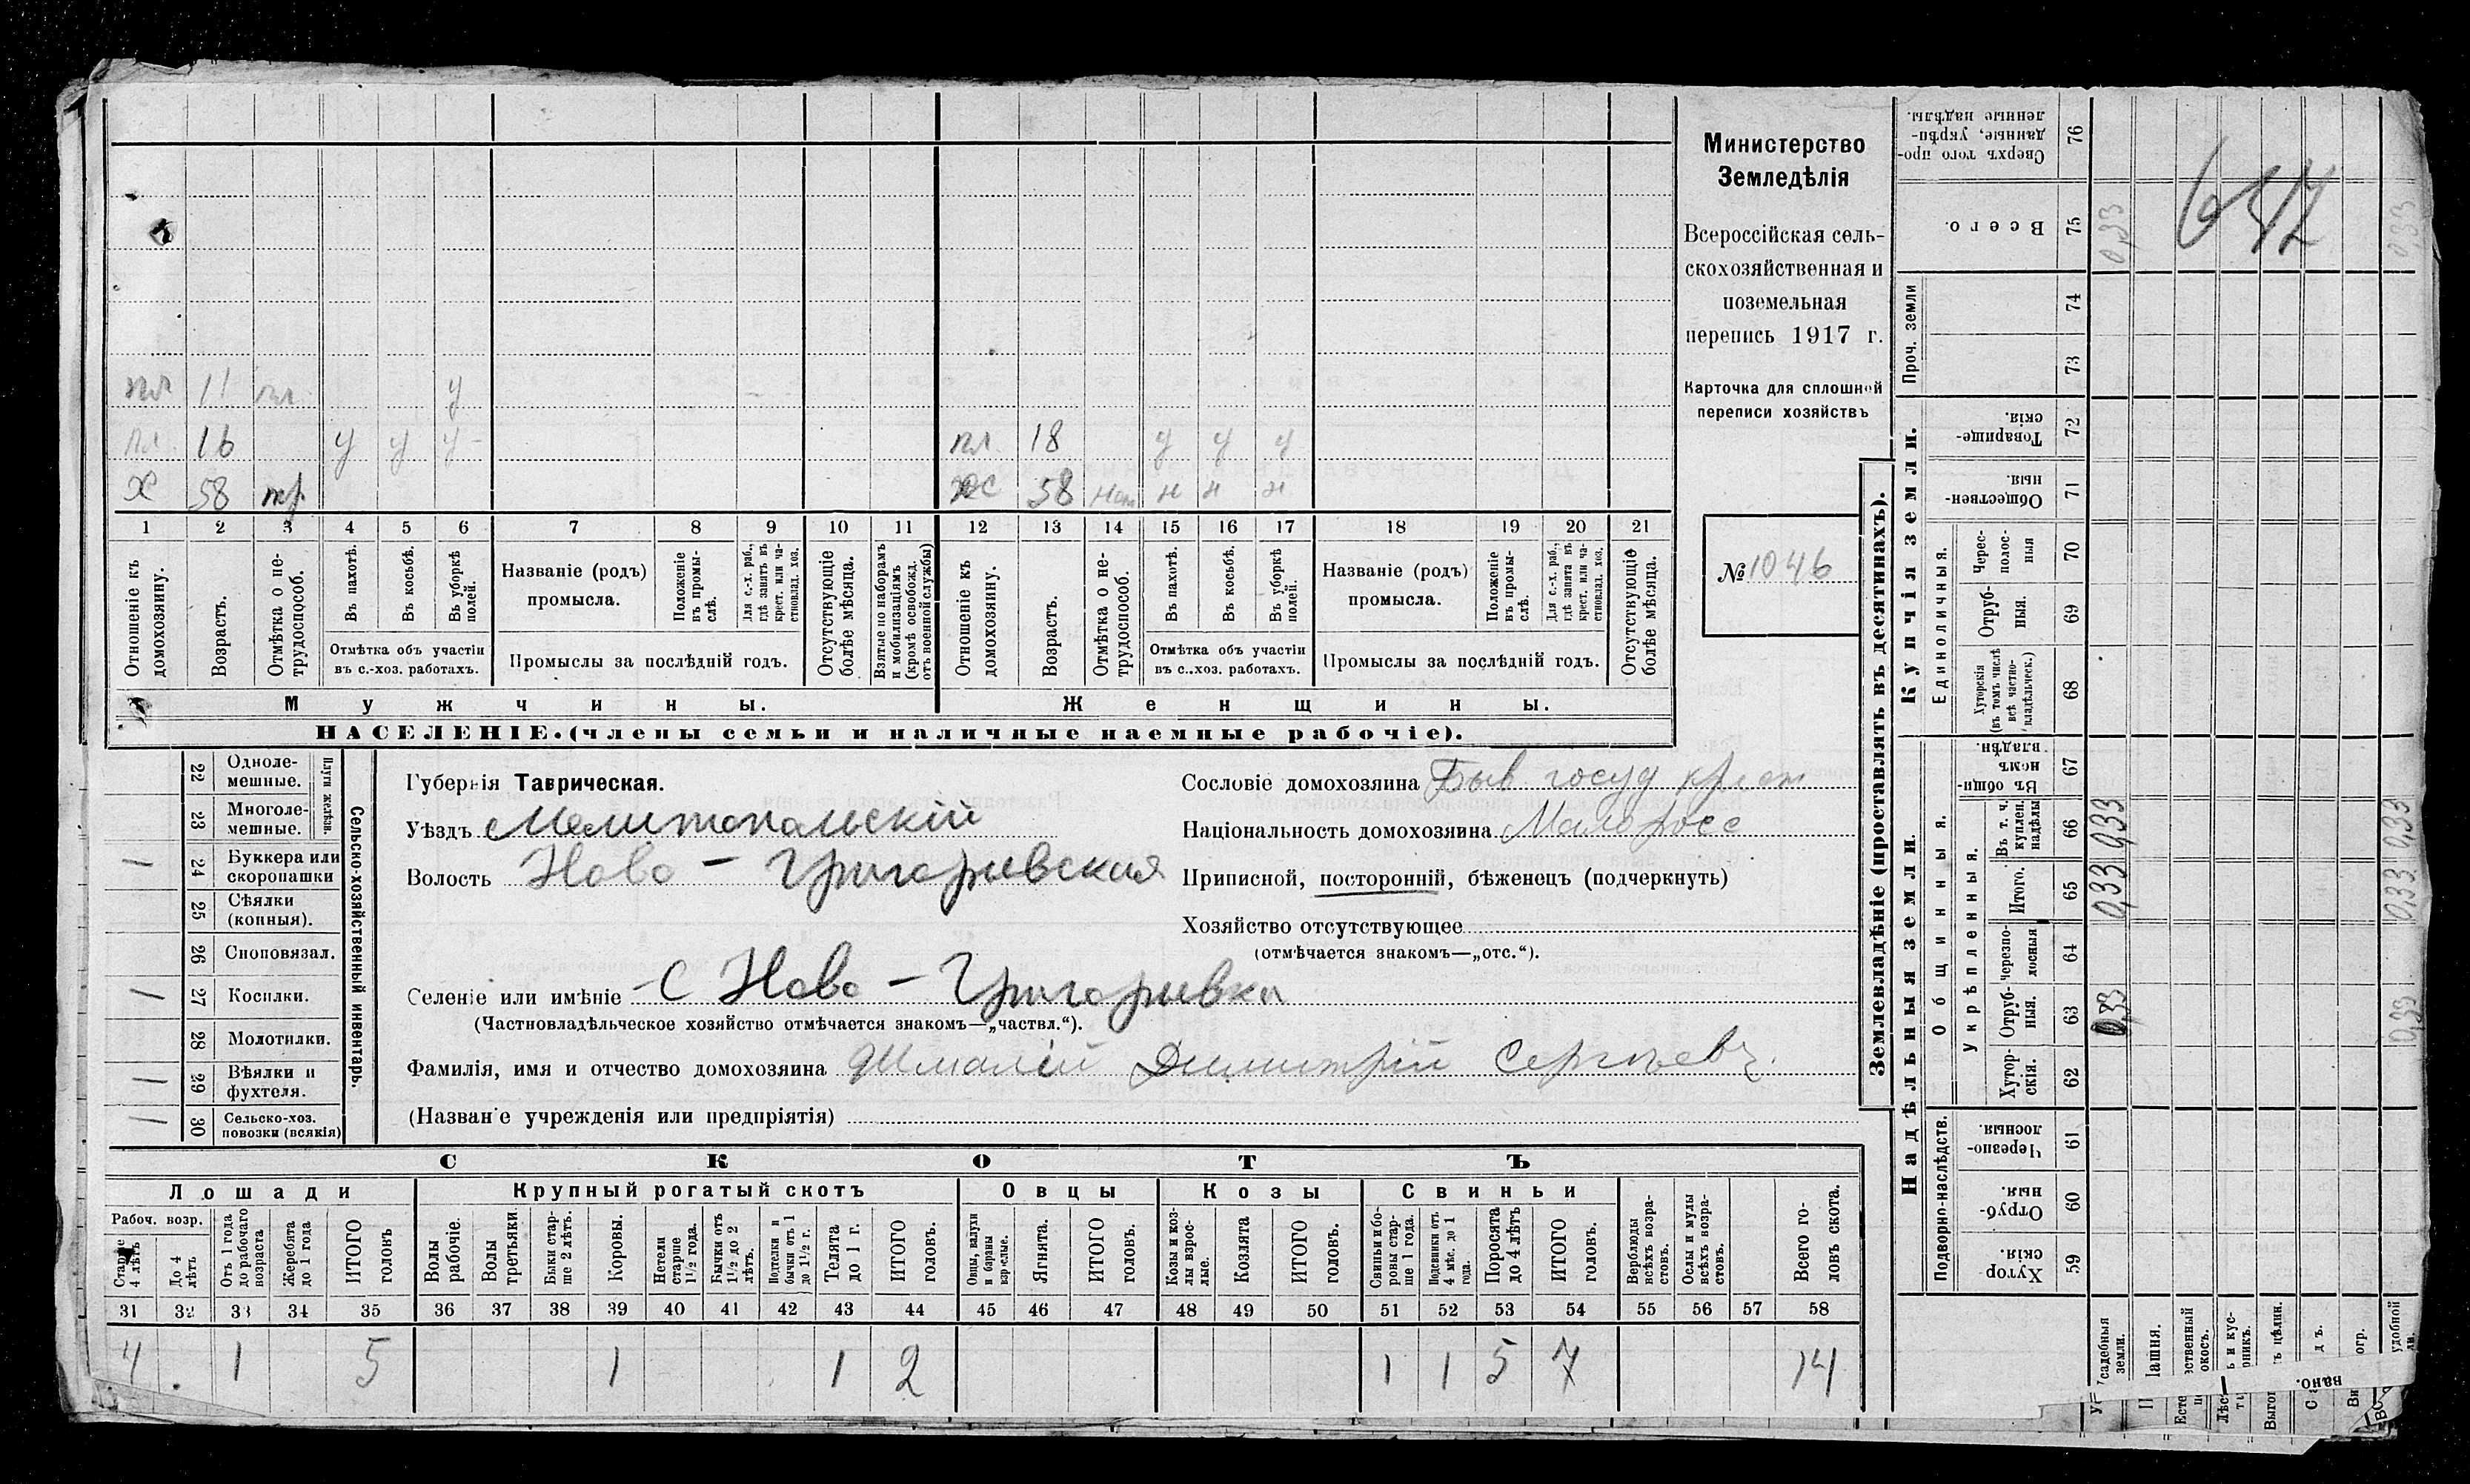 Министерство
Земледѣлія
Всероссійская сель-
скохозяйственная и
поземельная
перепись 1917 г.
Карточка для сплошной
переписи хозяйствъ
№ 1046
пл 11 пл у
пл. 16 у у у
пл. 18 у у у
Х 58 тр
ЖС 58 н н н
1 2 3 4 5 6 7 8 9 10 11 12 13 14 15 16 17 18 19 20 21
Отношеніе къ домохозяину.
Возрастъ.
Отмѣтка о не-трудоспособ.
Въ пахотѣ.
Въ косьбѣ.
Въ уборкѣ полей.
Отмѣтка объ участіи
въ с.-хоз. работахъ.
Названіе (родъ)
промысла.
Положеніе въ промы-слѣ.
Для с.-х. раб., гдѣ занятъ въ крест. или ча-стновлад. хоз.
Промыслы за послѣдній годъ.
Отсутствующіе болѣе мѣсяца.
Взятые по наборамъ и мобилизаціямъ (кромѣ освобожд. отъ военной службы)
Отношеніе къ домохозяину.
Возрастъ.
Отмѣтка о не-трудоспособ.
Въ пахотѣ.
Въ косьбѣ.
Въ уборкѣ полей.
Отмѣтка объ участіи
въ с..хоз. работахъ.
Названіе (родъ)
промысла.
Положеніе въ промы-слѣ.
Для с.-х. раб., гдѣ занята въ крест. или ча-стновлад. хоз.
Промыслы за послѣдній годъ.
Отсутствующіе болѣе мѣсяца.
Мужчины.
Женщины.
НАСЕЛЕНІЕ.(члены семьи и наличные наемные рабочіе).
Сельско-хозяйственный инвентарь.
Плуги желѣзн.
22 Одноле-
мешные.
23 Многоле-
мешные.
24 Буккера или
скоропашки
25 Сѣялки
(конныя).
26 Сноповязал.
27 Косилки.
28 Молотилки.
29 Вѣялки и
фухтеля.
30 Сельско-хоз.
повозки (всякія)
Губернія Таврическая.
Уѣздъ Мелитопольскій
Волость Ново - Григорьевская
Сословіе домохозяина Быв госуд крест
Національность домохозяина Малоросс
Приписной, посторонній, бѣженецъ (подчеркнуть)
Хозяйство отсутствующее
(отмѣчается знакомъ—„отс.“).
Селеніе или имѣніе С Ново - Григорьевка
(Частновладѣльческое хозяйство отмѣчается знакомъ—„частвл.“).
Фамилія, имя и отчество домохозяина Шмалій Димитрій Сергѣевъ.
(Названіе учрежденія или предпріятія)
СКОТЪ
Лошади
Крупный рогатый скотъ
Овцы
Козы
Свиньи
Рабоч. возр.
Старше 4 лѣтъ
До 4 лѣтъ
Отъ 1 года до рабочаго возраста
Жеребята до 1 года
ИТОГО головъ
Волы рабочіе.
Волы третьяки.
Быки стар-ше 2 лѣтъ.
Коровы.
Нетели старше 1½ года.
Бычки отъ 1½ до 2 лѣтъ.
Подтелки и бычки отъ 1 до 1½ г.
Телята до 1 г.
ИТОГО головъ.
Овцы, валухи и бараны взрослые.
Ягнята.
ИТОГО головъ.
Козы и коз-лы взрос-лые.
Козлята
ИТОГО головъ.
Свиньи и бо-ровы стар-ше 1 года.
Подсвинки отъ 4 мѣс. до 1 года.
Поросята до 4 лѣтъ
ИТОГО головъ.
Верблюды всѣхъ возра-стовъ.
Ослы и мулы всѣхъ возра-стовъ.
Всего го-ловъ скота.
31 32 33 34 35 36 37 38 39 40 41 42 43 44 45 46 47 48 49 50 51 52 53 54 55 56 57 58
4 1 5 1 1 2 1 1 5 7 14
Землевладѣніе (проставлять въ десятинахъ).
Надѣльныя земли.
Купчія земли.
Проч. земли
Подворно-наслѣдств.
Общинныя.
Укрѣпленныя.
Единоличныя.
Хутор-скія. 59
Отруб-ныя. 60
Черезпо-лосныя. 61
Хутор-скія. 62
Отруб-ныя. 63
Черезпо-лосныя 64
Итого. 65
Въ т. ч. куплен. надѣлы 66
Въ общи-номъ владѣн. 67
Хуторскія (въ томъ числѣ всѣ частно-владѣльческ.) 68
Отруб-ныя. 69
Черес-полос-ныя 70
Обществен-ныя. 71
Товарище-скія. 72
73
74
Всего. 75
Сверхъ того про-данные, укрѣп-ленные надѣлы. 76
0,33 0,33 0,33 0,33
0,33 0,33 0,33 0,33